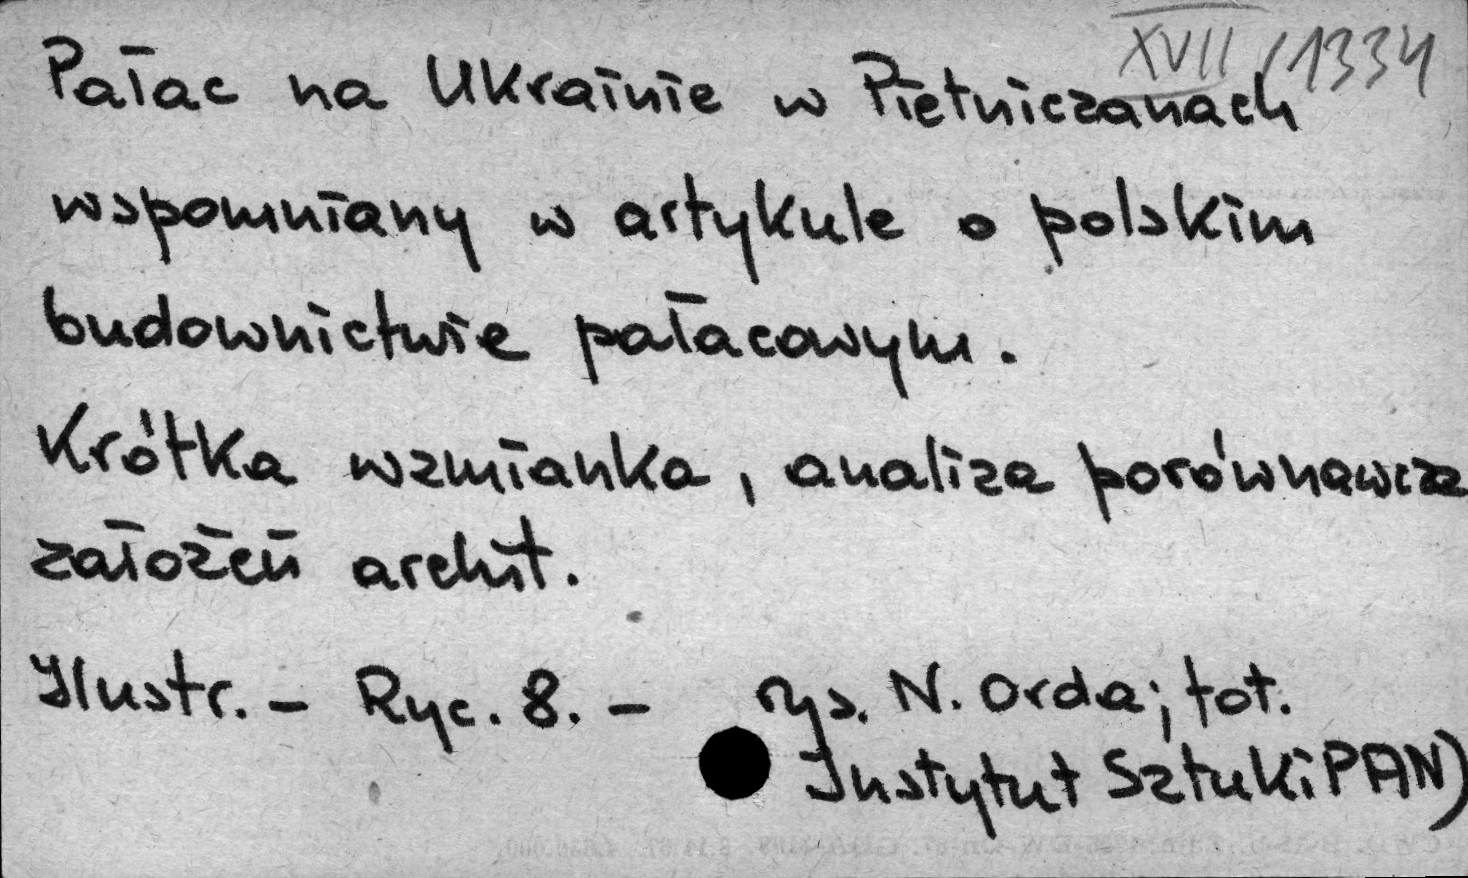 XVII/1334
Pałac na Ukrainie w Pietniczanach
wspomniany w artykule o polskim
budownictwie pałacowym.
Krótka wzmianka, analiza porównawcza
założeń archit.
Ilustr. – Ryc. 8. – rys. N. Orda; fot.
Instytut Sztuki PAN)